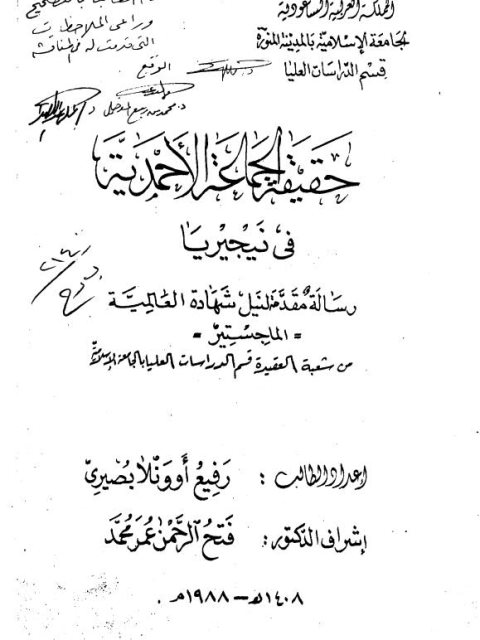 المملكة العربية السعودية
الجامعة الإسلامية بالمدينة المنورة
قسم الدراسات العليا
وراعى الملاحظات
التي قدمت له في المناقشة
التوقيع
د. محمد بن ربيع المدخلي
حَقيقَة الجَماعَة الأحْمَديَّة
في نَيجيريَا
رسَالَة مُقَدَّمَة لنَيل شَهَادة العَالميَّة
= الماجستير =
من شعبة العقيدة قسم الدراسات العليا بالجامعة الإسلامية
إعداد الطالب : رَفيعُ أوونلا بُصيري
إشراف الدكتور : فَتحُ الرَّحمٰن عُمَر مُحمَّد
١٤٠٨هـ - ١٩٨٨م .